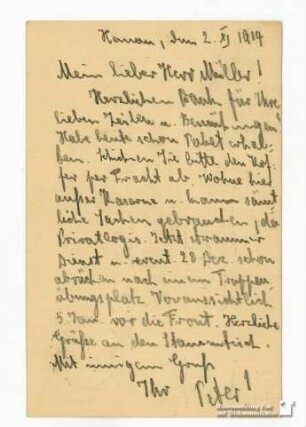 Hanau, den 2. XI 1914
Mein lieber Herr Müller!
Herzlichen Dank für Ihre
lieben Zeilen u. Bemühungen!
Habe heute schon Paket erhal-
ten. Schicken Sie bitte den Kof-
fer per Fracht ab. Wohne hier
außer Kaserne u. kann sämt-
liche Sachen gebrauchen, da
Privatlogis. Jetzt strammer
Dienst u. event. 28 Dez. schon
abrücken nach einem Truppen
übungsplatz Voraussichtlich
5 Jan. vor die Front. Herzliche
Grüße an den Stammtisch.
Mit innigem Gruß
Ihr Peter!